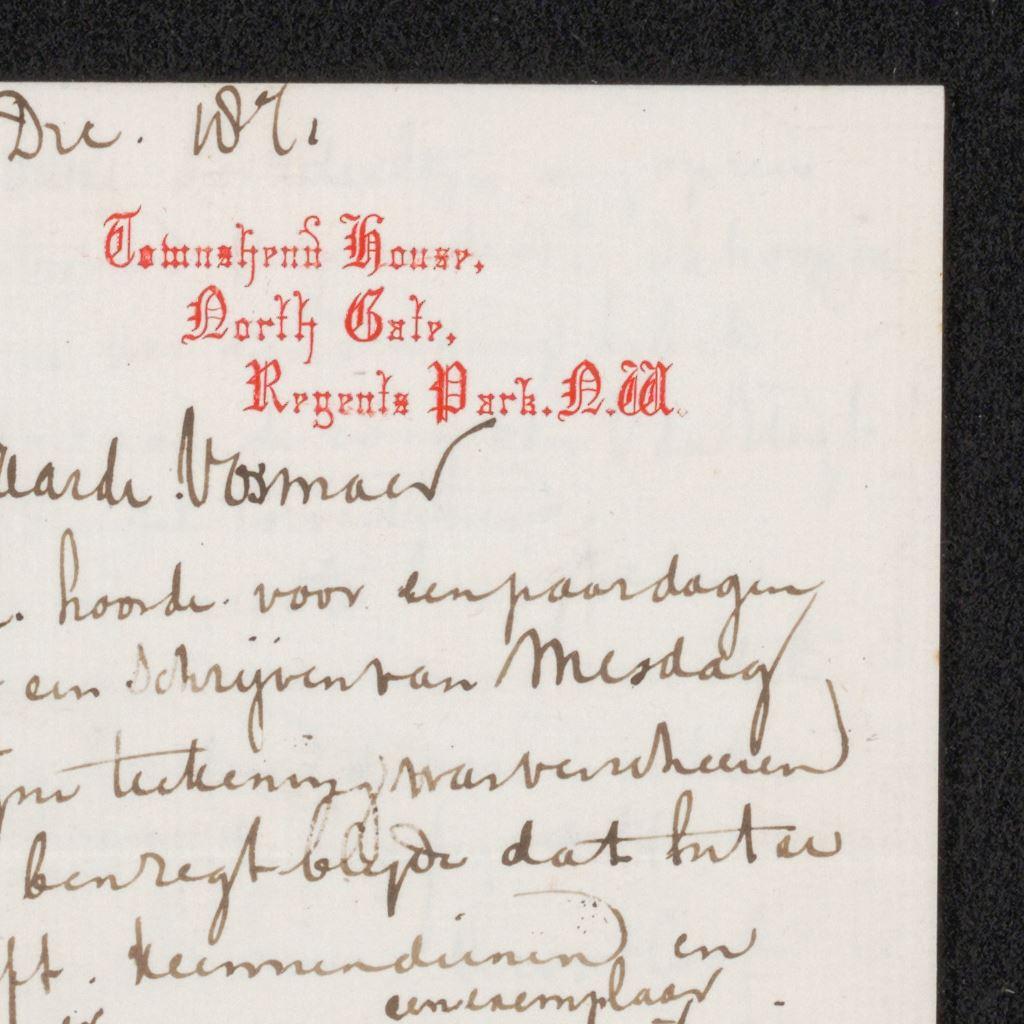 Dec. 1871
Townshend House,
North Gate,
Regents Park. N.W.
waarde Vosmaer
hoorde voor een paar dagen
een schrijven van Mesdag
teekening was verscheenen
ben regt blijde dat het u
kunnen dienen en
een exemplaar